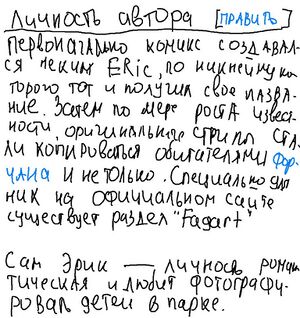 личность автора [править]
Первоначально комикс создавал-
ся неким ERic, по никнейму ко
торого тот и получил свое назва-
ние. Затем по мере роста извес-
ности, оригинальные стрипы ста
ли копироваться обитателями Фор-
чана и не только. Специально для
ник на официальном сайте
существует раздел "Fagart"
Сам Эрик — личность роман
тическая и любит фотографи-
ровать детей в парке.